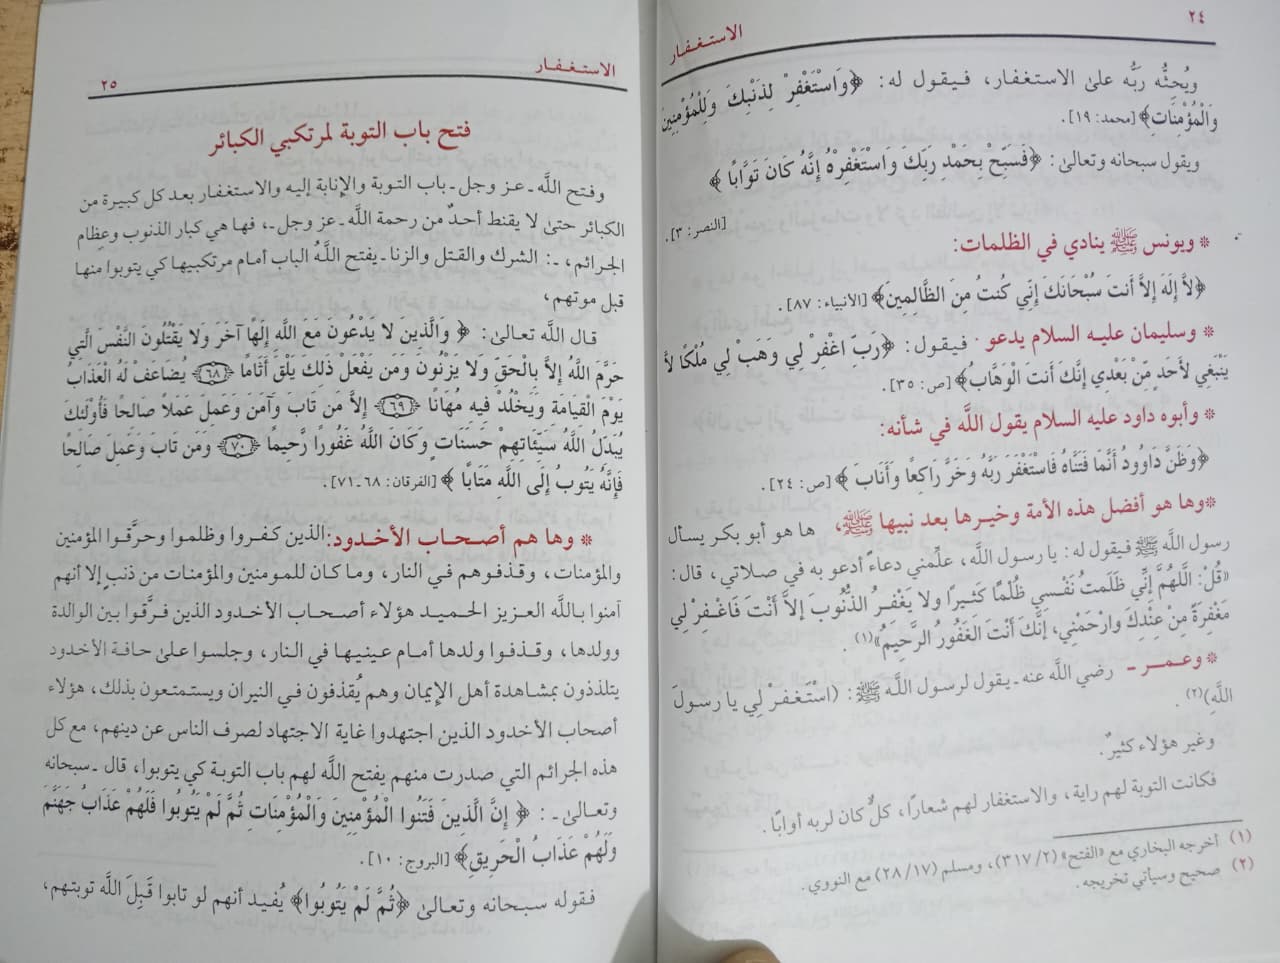 ٢٤
الاستغفار
ويُحثُّه ربَّه علىٰ الاستغفار، فيقول له: ﴿وَاسْتَغْفِرْ لِذَنْبِكَ وَلِلْمُؤْمِنِينَ
وَالْمُؤْمِنَاتِ﴾ [محمد: ١٩].
ويقول سبحانه وتعالىٰ: ﴿فَسَبِّحْ بِحَمْدِ رَبِّكَ وَاسْتَغْفِرْهُ إِنَّهُ كَانَ تَوَّابًا﴾
[النصر: ٣].
* ويونس ﷺ ينادي في الظلمات:
﴿لاَّ إِلَهَ إِلاَّ أَنتَ سُبْحَانَكَ إِنِّي كُنتُ مِنَ الظَّالِمِينَ﴾ [الأنبياء: ٨٧].
* وسليمان عليه السلام يدعو · فيقول: ﴿رَبِّ اغْفِرْ لِي وَهَبْ لِي مُلْكًا لاَّ
يَنبَغِي لأَحَدٍ مِّنْ بَعْدِي إِنَّكَ أَنتَ الْوَهَّابُ﴾ [ص: ٣٥].
* وأبوه داود عليه السلام يقول اللَّه في شأنه:
﴿وَظَنَّ دَاوُودُ أَنَّمَا فَتَنَّاهُ فَاسْتَغْفَرَ رَبَّهُ وَخَرَّ رَاكِعًا وَأَنَابَ﴾ [ص: ٢٤].
* وها هو أفضل هذه الأمة وخيرها بعد نبيها ﷺ، ها هو أبو بكر يسأل
رسول اللَّه ﷺ فيقول له: يا رسول اللَّه، علِّمني دعاءً أدعو به في صلاتي، قال:
«قُلْ: اللَّهُمَّ إِنِّي ظَلَمتُ نَفْسي ظُلْمًا كَثيرًا ولا يَغْفرُ الذُّنُوبَ إلاَّ أَنْتَ فَاغْفِرْ لي
مَغْفِرَةً مِنْ عِنْدِكَ وَارْحَمْنِي، إِنَّكَ أَنْتَ الغَفُورُ الرَّحِيمُ»(١) .
* وعمر - رضي اللَّه عنه - يقول لرسول اللَّه ﷺ: (اسْتَغفرْ لي يا رسولَ
اللَّهِ)(٢) .
وغير هؤلاء كثيرٌ.
فكانت التوبة لهم راية، والاستغفار لهم شعارًا، كلٌّ كان لربه أوابًا .
(١) أخرجه البخاري مع «الفتح» (٣١٧/٢)، ومسلم (٢٨/١٧) مع النووي .
(٢) صحيح وسيأتي تخريجه.
الاستغفار
٢٥
فتح باب التوبة لمرتكبي الكبائر
وفتح اللَّه ـ عز وجل ـ باب التوبة والإنابة إليه والاستغفار بعد كل كبيرة من
الكبائر حتىٰ لا يقنط أحدٌ من رحمة اللَّه ـ عز وجل ـ، فها هي كبار الذنوب وعِظام
الجرائم، ـ: الشرك والقتل والزنا ـ يفتح اللَّهُ الباب أمام مرتكبيها كي يتوبوا منها
قبل موتهم،
قال اللَّه تعالىٰ: ﴿وَالَّذينَ لا يَدْعُونَ مَعَ اللَّه إِلَهًا آخَرَ وَلا يَقْتُلُونَ النَّفْسَ الَّتِي
حَرَّمَ اللَّهُ إِلاَّ بِالْحَقِّ وَلا يَزْنُونَ وَمَن يَفْعَلْ ذَلِكَ يَلْقَ أَثَامًا ﴿٦٨﴾ يُضَاعَفْ لَهُ الْعَذَابُ
يَوْمَ الْقِيَامَةِ وَيَخْلُدْ فِيهِ مُهَانًا ﴿٦٩﴾ إِلاَّ مَن تَابَ وَآمَنَ وَعَمِلَ عَمَلاً صَالِحًا فَأُوْلَئِكَ
يُبَدِّلُ اللَّهُ سَيِّئَاتِهِمْ حَسَنَاتٍ وَكَانَ اللَّهُ غَفُورًا رَّحِيمًا ﴿٧٠﴾ وَمَن تَابَ وَعَمِلَ صَالِحًا
فَإِنَّهُ يَتُوبُ إِلَى اللَّهِ مَتَابًا﴾ [الفرقان: ٦٨ـ٧١].
* وها هم أصحاب الأخدود: الذين كفروا وظلموا وحرَّقوا المؤمنين
والمؤمنات، وقذفوهم في النار، وما كان للمومنين والمؤمنات من ذنبٍ إلا أنهم
آمنوا باللَّه العزيز الحميد هؤلاء أصحاب الأخدود الذين فرَّقوا بين الوالدة
وولدها، وقذفوا ولدها أمام عينيها في النار، وجلسوا علىٰ حافة الأخدود
يتلذذون بمشاهدة أهل الإيمان وهم يُقذفون في النيران ويستمتعون بذلك، هؤلاء
أصحاب الأخدود الذين اجتهدوا غاية الاجتهاد لصرف الناس عن دينهم، مع كل
هذه الجرائم التي صدرت منهم يفتح اللَّه لهم باب التوبة كي يتوبوا، قال ـ سبحانه
وتعالىٰ ـ: ﴿إِنَّ الَّذِينَ فَتَنُوا الْمُؤْمِنِينَ وَالْمُؤْمِنَاتِ ثُمَّ لَمْ يَتُوبُوا فَلَهُمْ عَذَابُ جَهَنَّمَ
وَلَهُمْ عَذَابُ الْحَرِيقِ﴾ [البروج: ١٠].
فقوله سبحانه وتعالىٰ ﴿ثُمَّ لَمْ يَتُوبُوا﴾ يُفيد أنهم لو تابوا قَبِلَ اللَّه توبتهم،